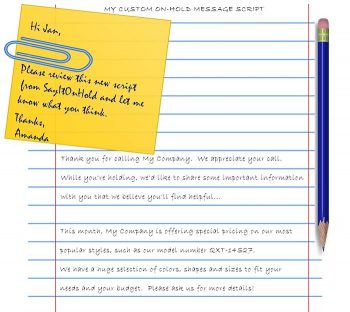 MY CUSTOM ON-HOLD MESSAGE SCRIPT
Hi Jan,
Please review this new script
from SayItOnHold and let me
know what you think.
Thanks,
Amanda
Thank you for calling My Company. We appreciate your call.
While you're holding, we'd like to share some important information
with you that we believe you'll find helpful...
This month, My Company is offering special pricing on our most
popular styles, such as our model number QXT-14527.
We have a huge selection of colors, shapes and sizes to fit your
needs and your budget. Please ask us for more details!